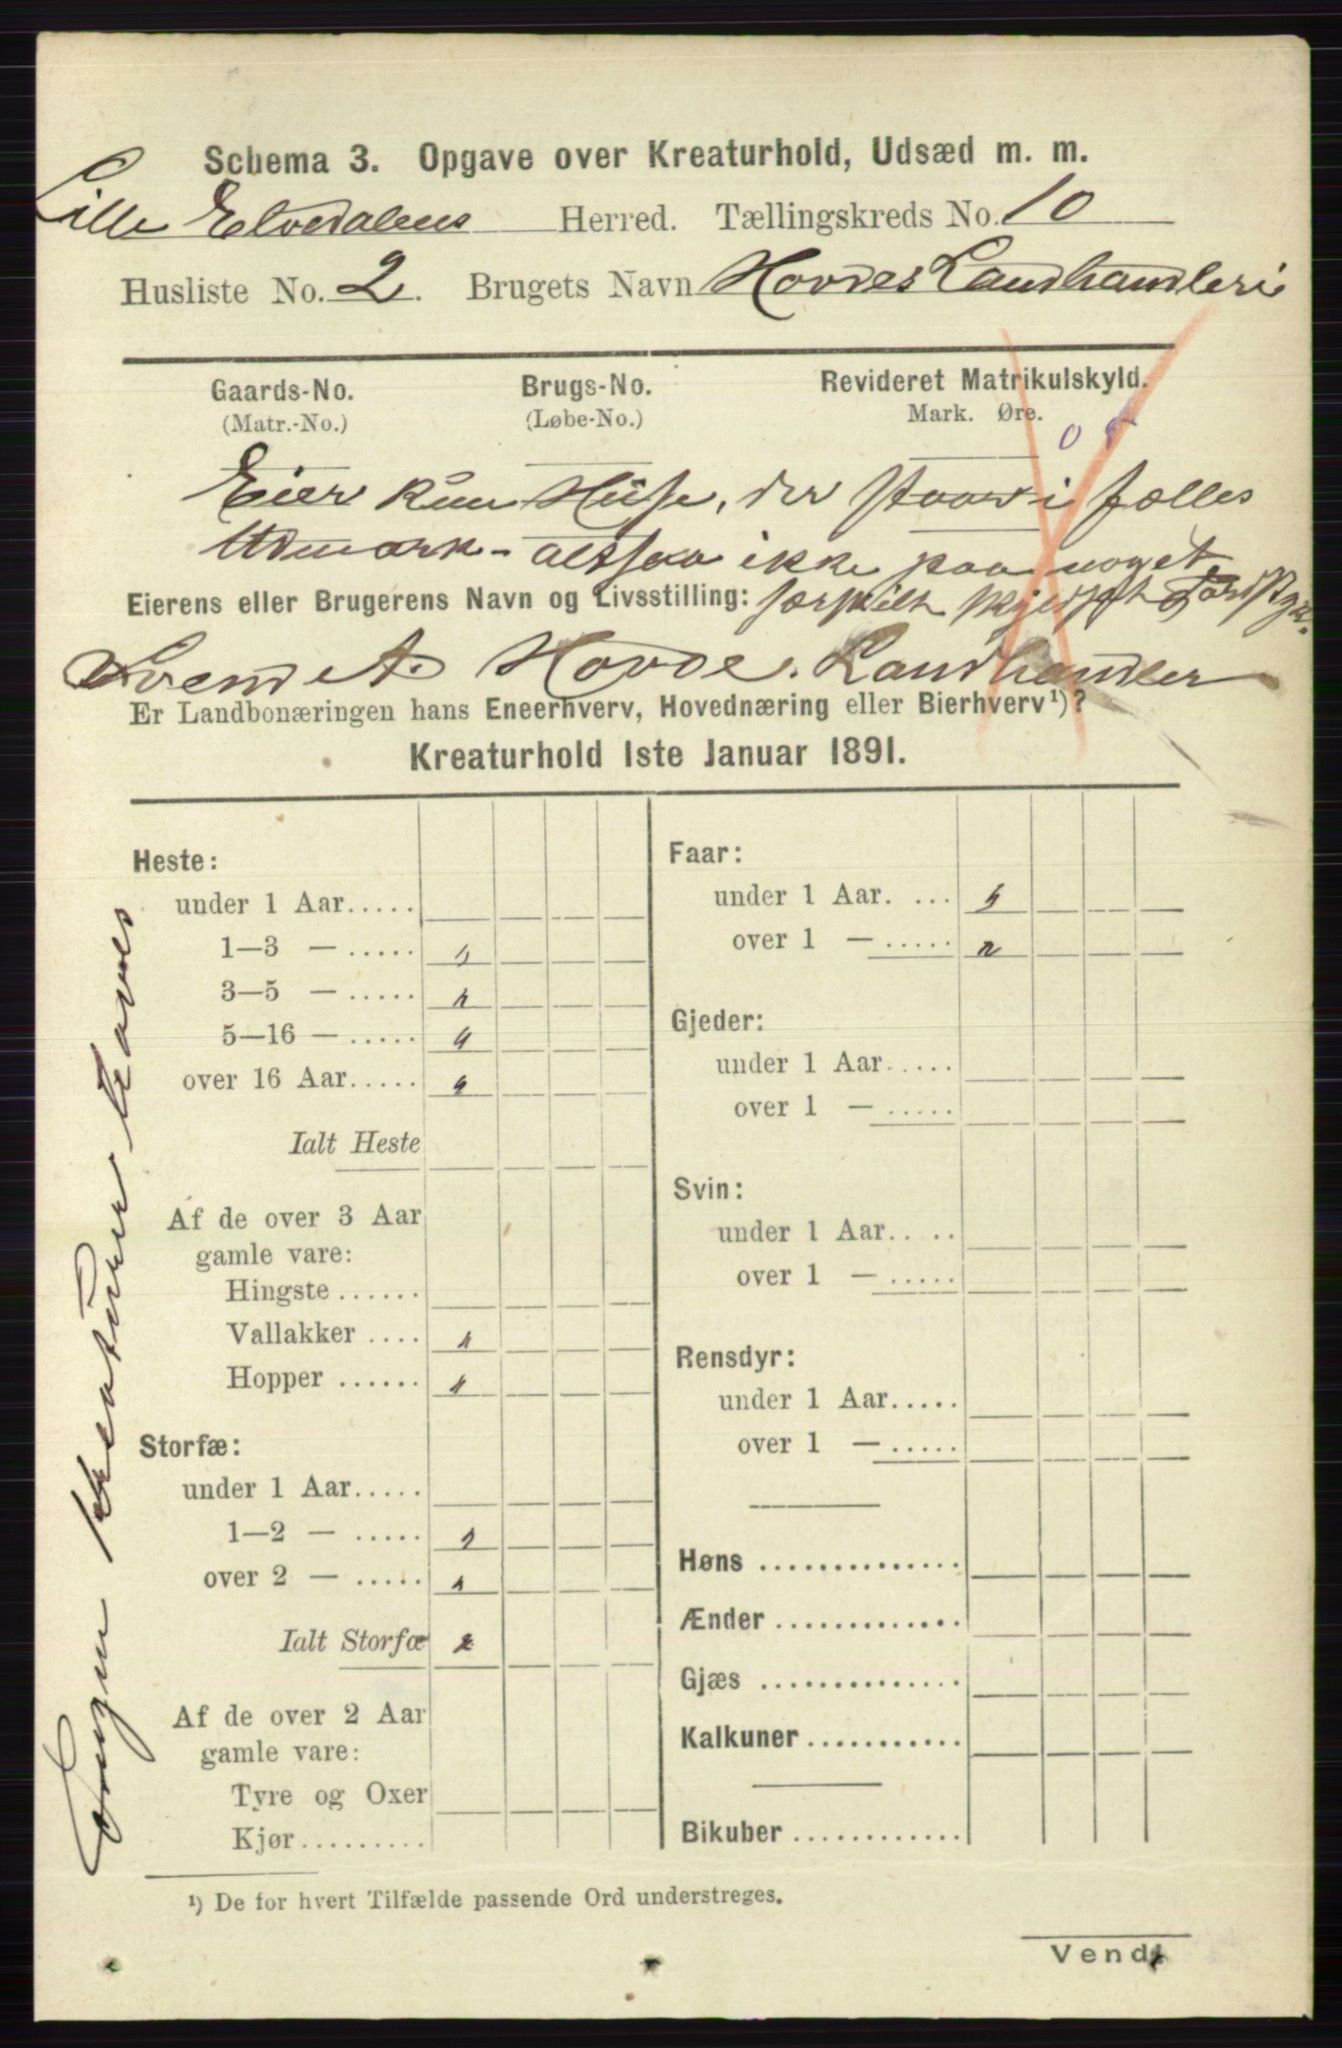 Schema 3. Opgave over Kreaturhold, Udsæd m. m.
Lille Elvedalens Herred. Tællingskreds No. 10
Husliste No. 2. Brugets Navn Hovdes Landhandleri
Gaards-No. Brugs-No. Revideret Matrikulskyld.
(Matr.-No.) (Løbe-No.) Mark. Øre.
0
Eier kun Huse, der staar i fælles
Udmark - altsaa ikke paa noget
Eierens eller Brugerens Navn og Livsstilling: særskilt skyldsat Jordstyk.
Svend A. Hovde. Landhandler
Er Landbonæringen hans Eneerhverv, Hovednæring eller Bierhverv¹)?
Kreaturhold 1ste Januar 1891.
Ingen Kreaturer haves
Heste:
under 1 Aar.....
1—3 — .....
3—5 — .....
5—16 — .....
over 16 Aar.....
Ialt Heste
Af de over 3 Aar
gamle vare:
Hingste ......
Vallakker .... 1
Hopper ...... 1
Storfæ:
under 1 Aar.....
1—2 — .....
over 2 — ..... 1
Ialt Storfæ 2
Af de over 2 Aar
gamle vare:
Tyre og Oxer
Kjør.........
Faar:
under 1 Aar. ...
over 1 — ..... 2
Gjeder:
under 1 Aar.....
over 1 — .....
Svin:
under 1 Aar.. ..
over 1 — .....
Rensdyr:
under 1 Aar.....
over 1 — .....
Høns ..............
Ænder .............
Gjæs ..............
Kalkuner ...........
Bikuber .............
¹) De for hvert Tilfælde passende Ord understreges.
Vend!